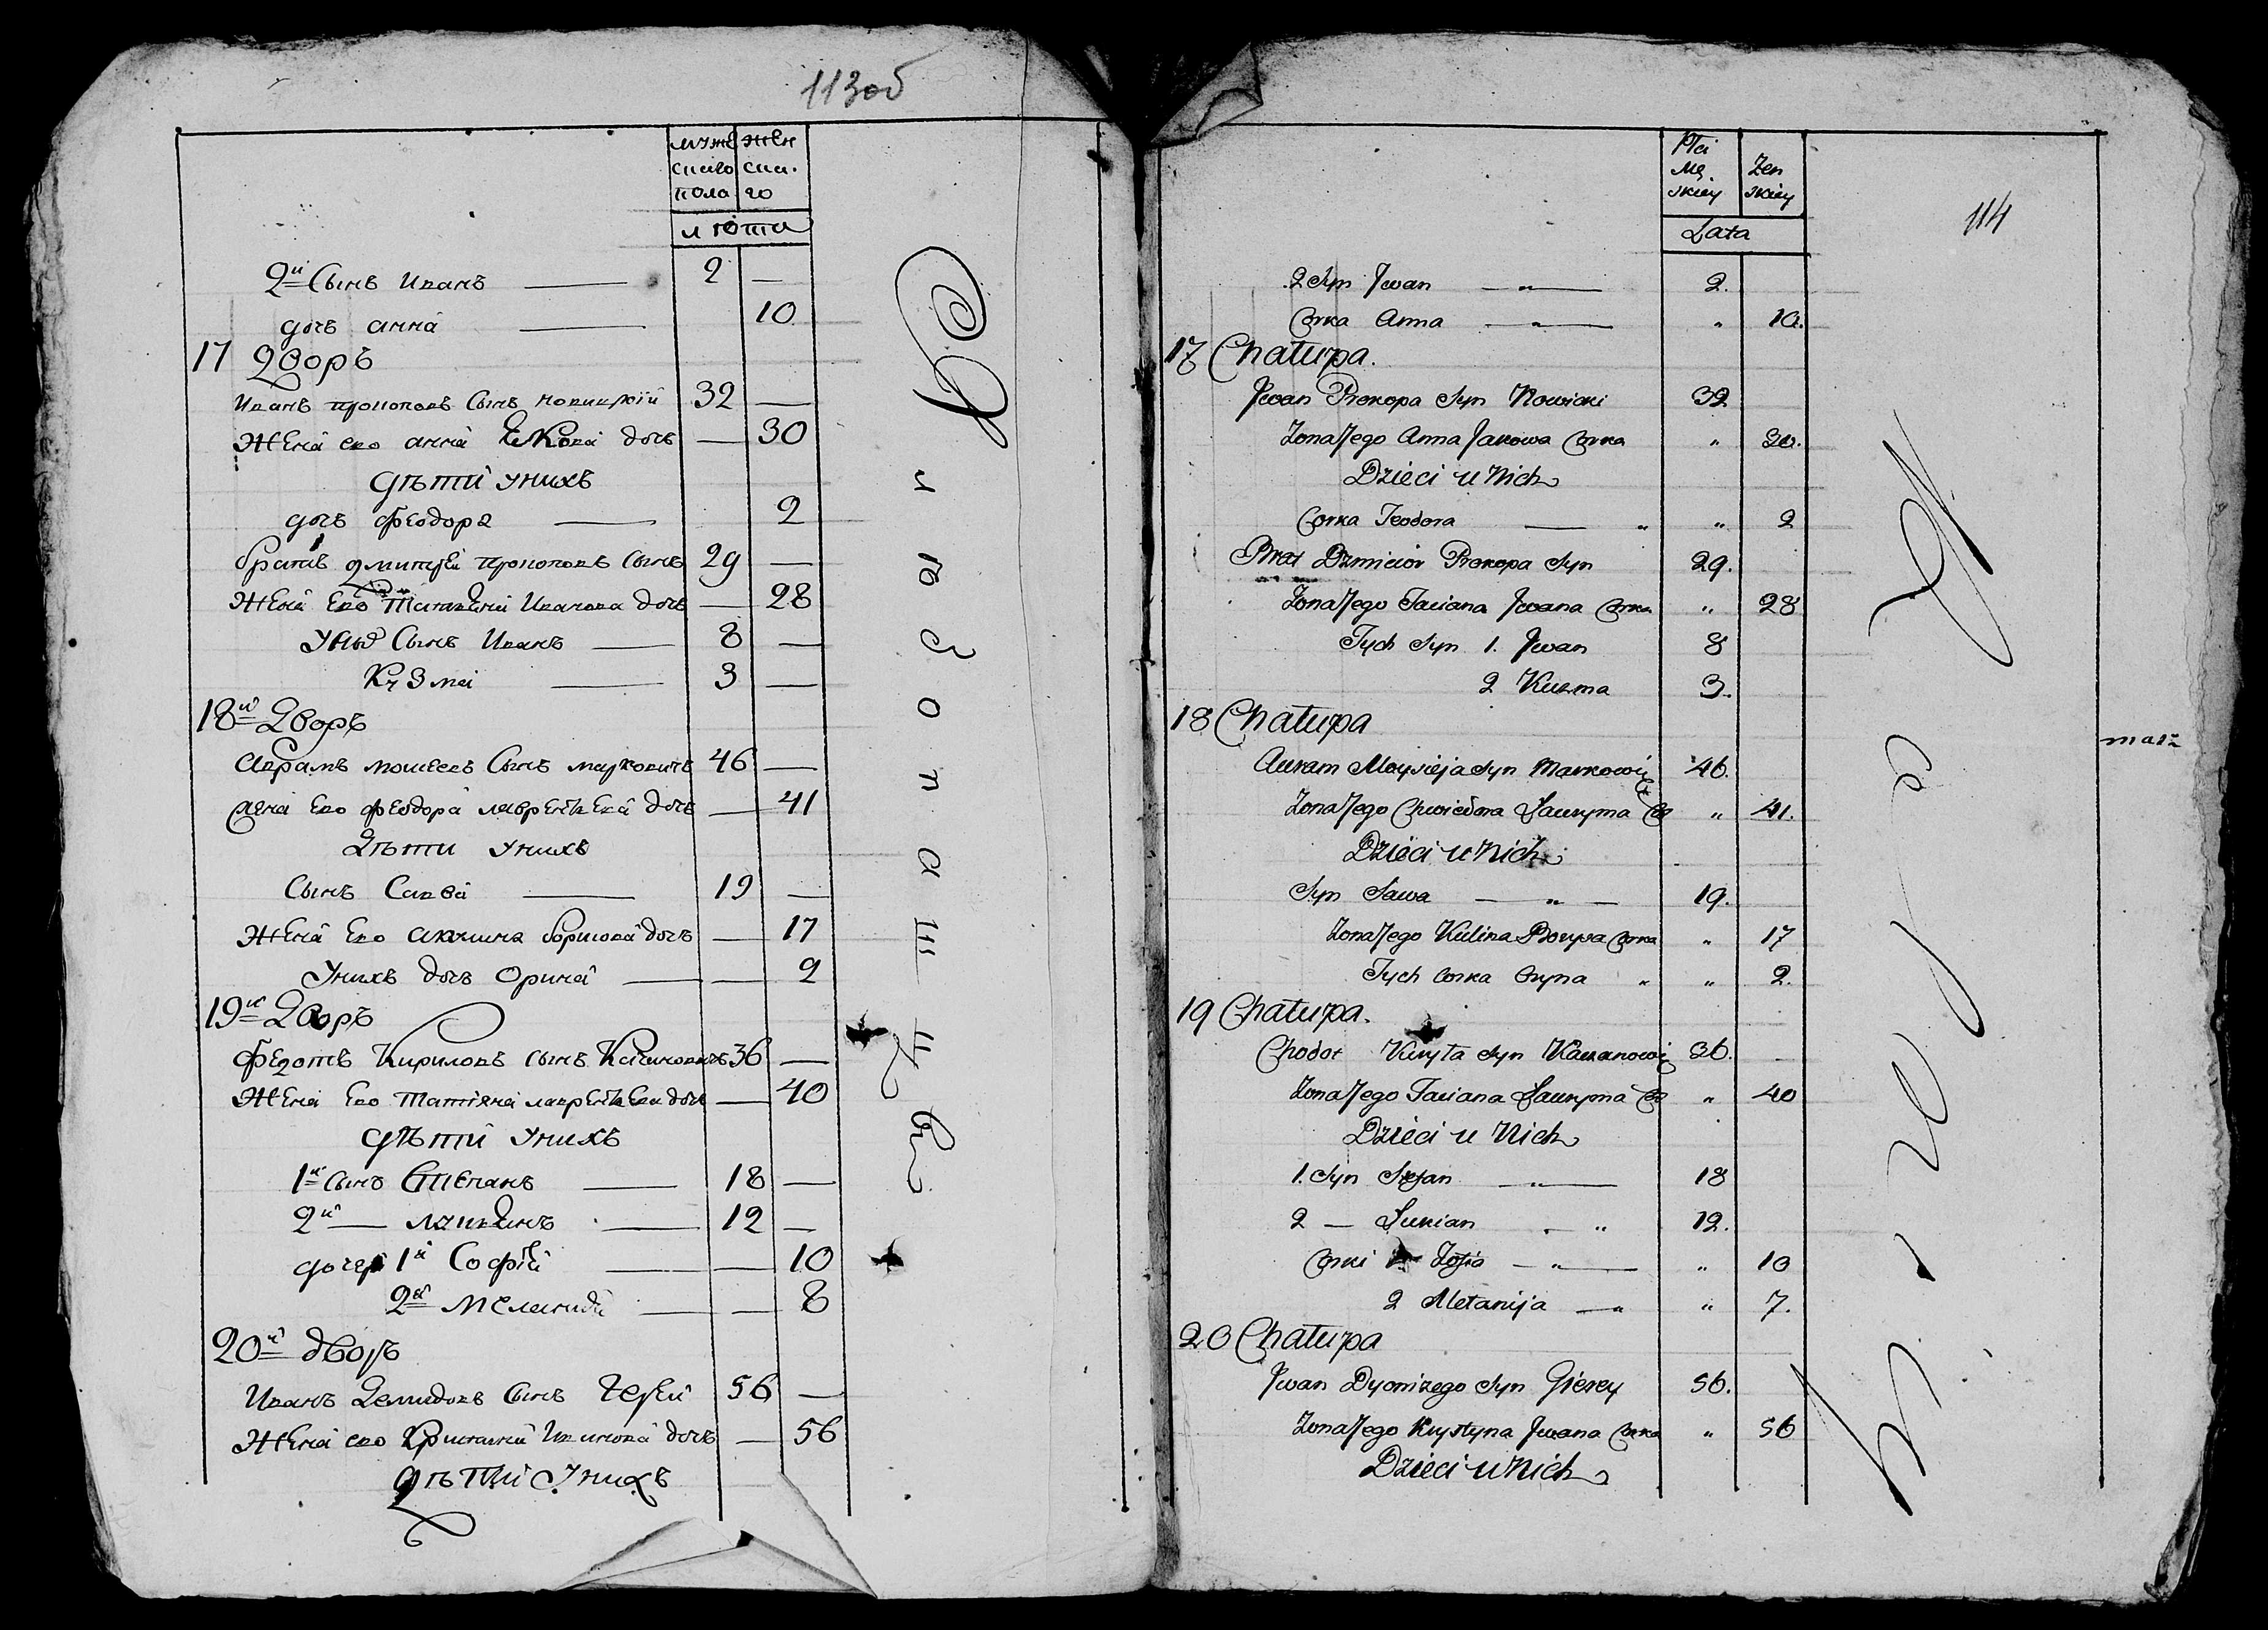 113об
мужескаго пола
женскаго
лѣта
2й Сынъ Иванъ 2 —
дочь анна 10
17 Дворъ
Иванъ прокоповъ Сынъ новицкій 32 —
Жена ево анна Якова дочь — 30
Дѣти унихъ
дочь феодора 2
братъ дмитрей прокоповъ Сынъ 29 —
Жена Ево Татьяна Иванова дочь — 28
Сынъ Иванъ 8 —
Кузма 3 —
18й Дворъ
Аврамъ моисеевъ Сынъ марковичь 46 —
жена Ево феодора лаврентьева дочь — 41
Дѣти унихъ
Сынъ Савва 19 —
Жена Ево акулина борисова дочь — 17
Унихъ дочь Орина — 2
19й Дворъ
Федотъ Кириловъ сынъ 36 —
Жена Ево Татіяна лаврентьева дочь — 40
Дѣти Унихъ
1й Сынъ Степанъ 18 —
2й — лукьянъ 12 —
дочери 1я Софія — 10
2я Меланія — 8
20й дворъ
Иванъ Демидовъ Сынъ 56 —
Жена ево Христина Иванова дочь — 56
Дѣти Унихъ
114
Płci Męskiey
Żenskiey
Lata
2 Syn Jwan — " — 2.
Corka Anna — " — " 10.
17 Chałupa.
Jwan Prokopa Syn Nowicki 32
Zona Jego Anna Jakowa Corka " 30.
Dzieci u Nich
Corka Teodora — " " 2
Brat Dzmicior Prokopa Syn 29.
Zona Jego Taciana Jwana Corka " 28
Tych Syn 1. Jwan 8
2 Kuzma 3.
18 Chałupa
Auram Moysieja Syn Markowicz 46.
Zona Jego Chwiedora Ławryna Co " 41.
Dzieci u Nich
Syn Sawa — " — 19.
Zona Jego Kulina Borysa Corka " 17
Tych Corka Oryna " " 2.
19 Chałupa.
Chodor Kiryła Syn 36.
Zona Jego Taciana Ławryna Co " 40
Dzieci u Nich
1. Syn Stefan — " — 18
2 — Łukian " 12.
Corki 1 Zofia — " — " 10
2 Mełanija — " " 7.
20 Chałupa
Jwan Dyonizego Syn Gierey 56.
Zona Jego Krystyna Jwana Corka " 56
Dzieci u Nich